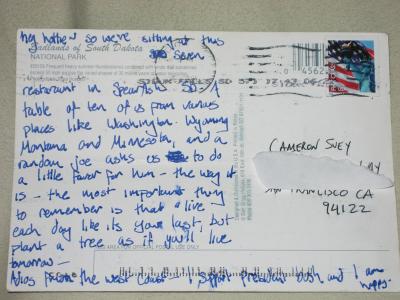 hey hottie so we're sitting at this
Badlands of South Dakota
NATIONAL PARK
restaurant in Spearfish SD. A
table of ten of us from various
places like Washington. Wyoming
Montana and Minnesota, and a
random joe asks us to do
a little favor for him - the way it
is - the most important thing
to remember is that "live
each day like its your last, but
plant a tree as if you'll live
tomorrow -
Adios from the west coast
I support president bush and I am
happy-
CAMERON SUEY
SAN FRANCISCO CA
94122